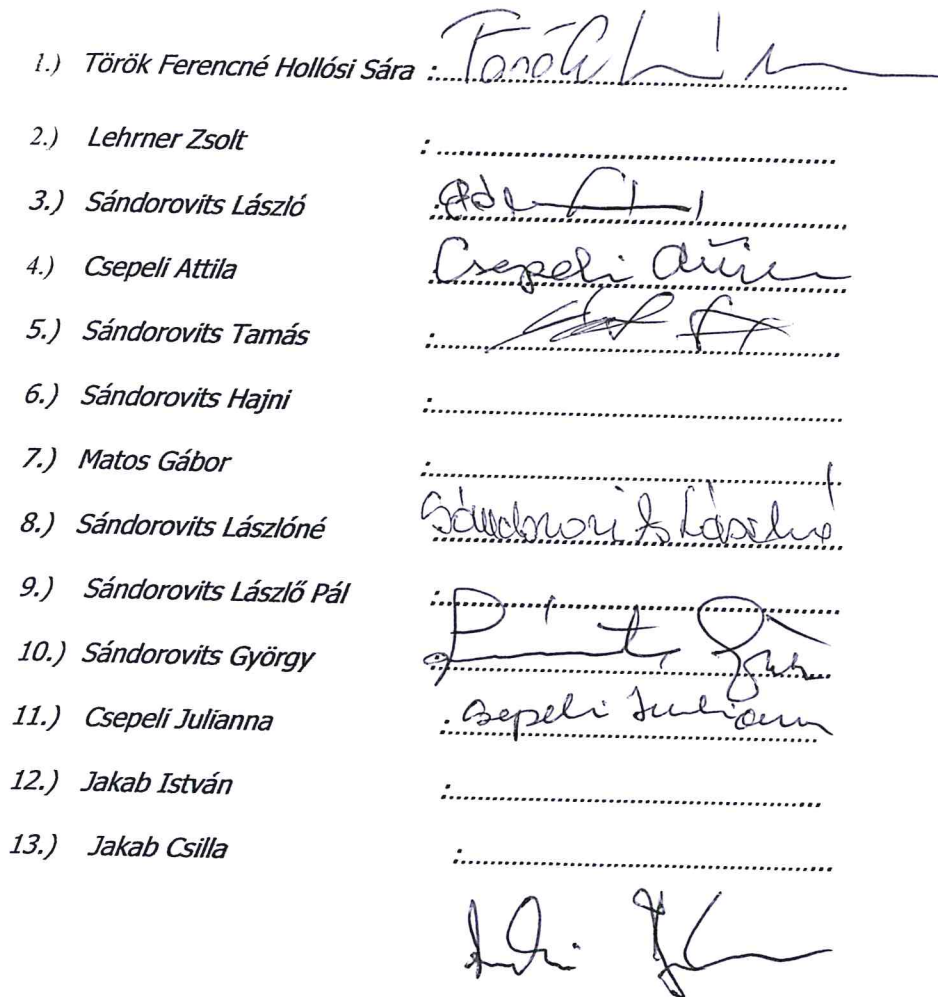 1.) Török Ferencné Hollósi Sára : Török
2.) Lehrner Zsolt :
3.) Sándorovits László :
4.) Csepeli Attila : Csepeli Attila
5.) Sándorovits Tamás :
6.) Sándorovits Hajni :
7.) Matos Gábor :
8.) Sándorovits Lászlóné Sándorovits Lászlóné
9.) Sándorovits Lászlő Pál :
10.) Sándorovits György
11.) Csepeli Julianna : Csepeli Julianna
12.) Jakab István :
13.) Jakab Csilla :